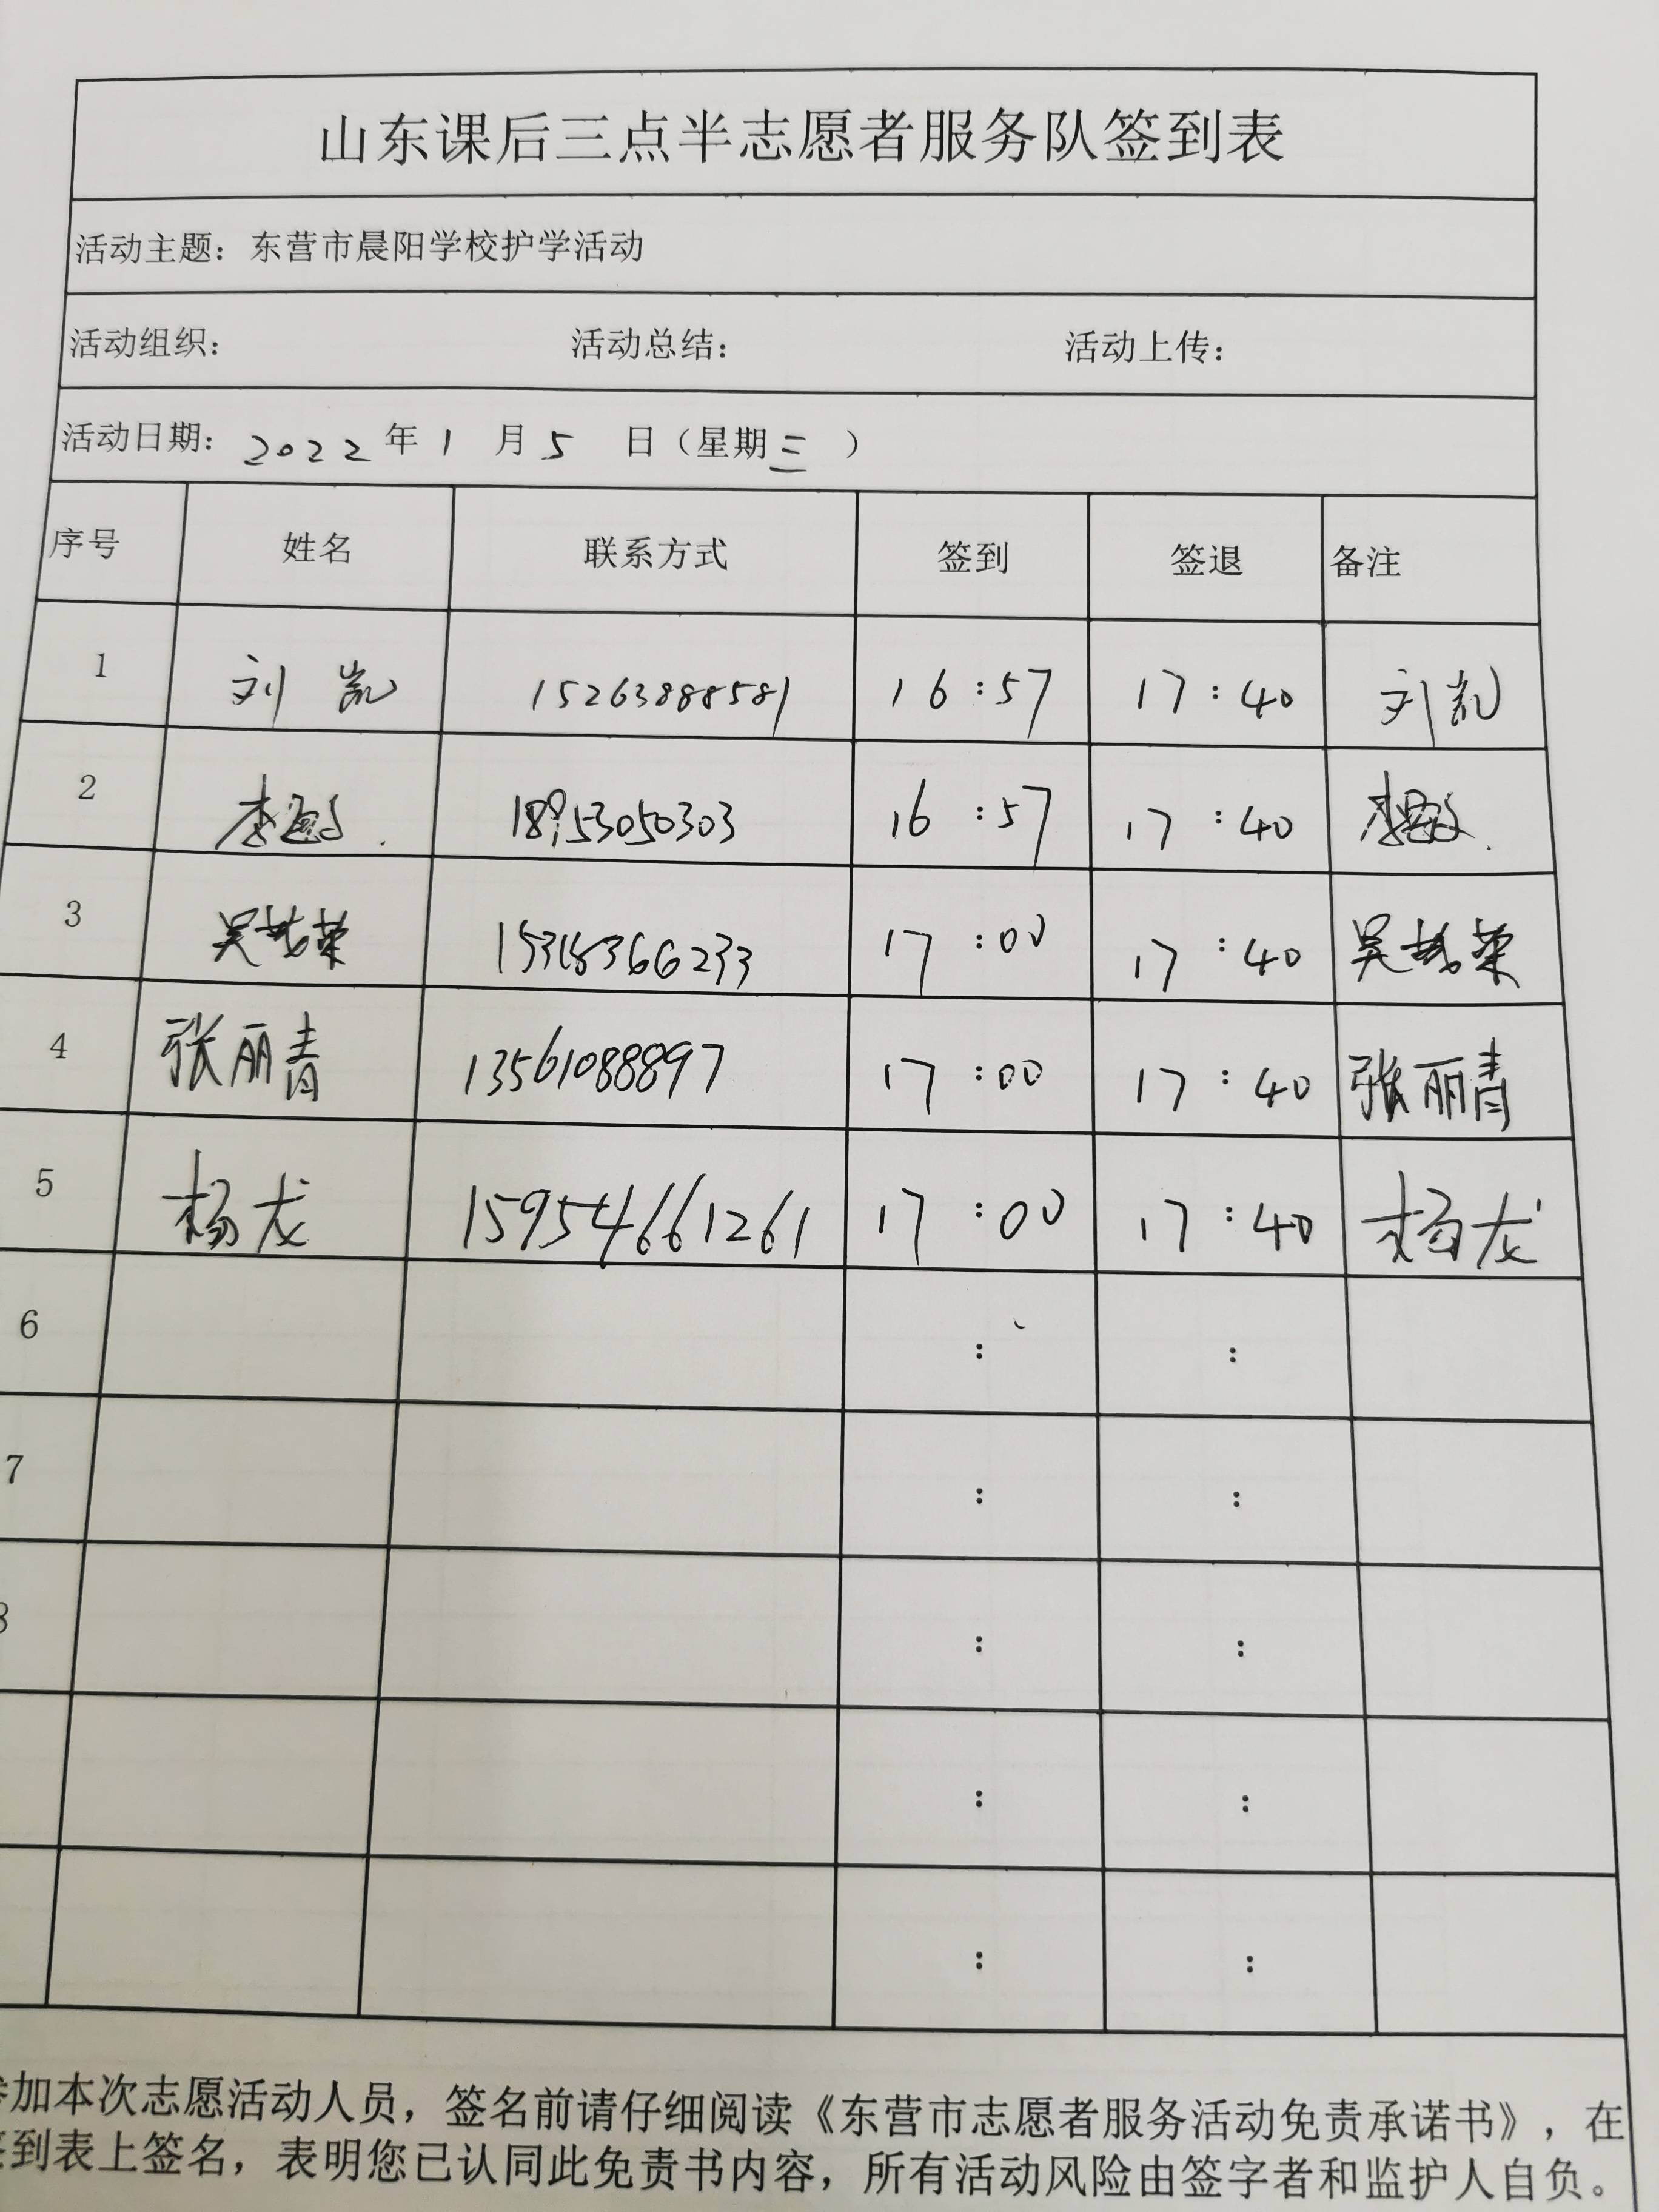 山东课后三点半志愿者服务队签到表
活动主题：东营市晨阳学校护学活动
活动组织： 活动总结： 活动上传：
活动日期：2022年1月5日（星期三）
序号 姓名 联系方式 签到 签退 备注
1 刘凯 15263888581 16:57 17:40 刘凯
2 李 18953050303 16:57 17:40 李
3 吴 荣 15318366233 17:00 17:40 吴 荣
4 张丽青 13561088897 17:00 17:40 张丽青
5 杨龙 15954661261 17:00 17:40 杨龙
6 : :
7 : :
8 : :
: :
: :
参加本次志愿活动人员，签名前请仔细阅读《东营市志愿者服务活动免责承诺书》，在
签到表上签名，表明您已认同此免责书内容，所有活动风险由签字者和监护人自负。